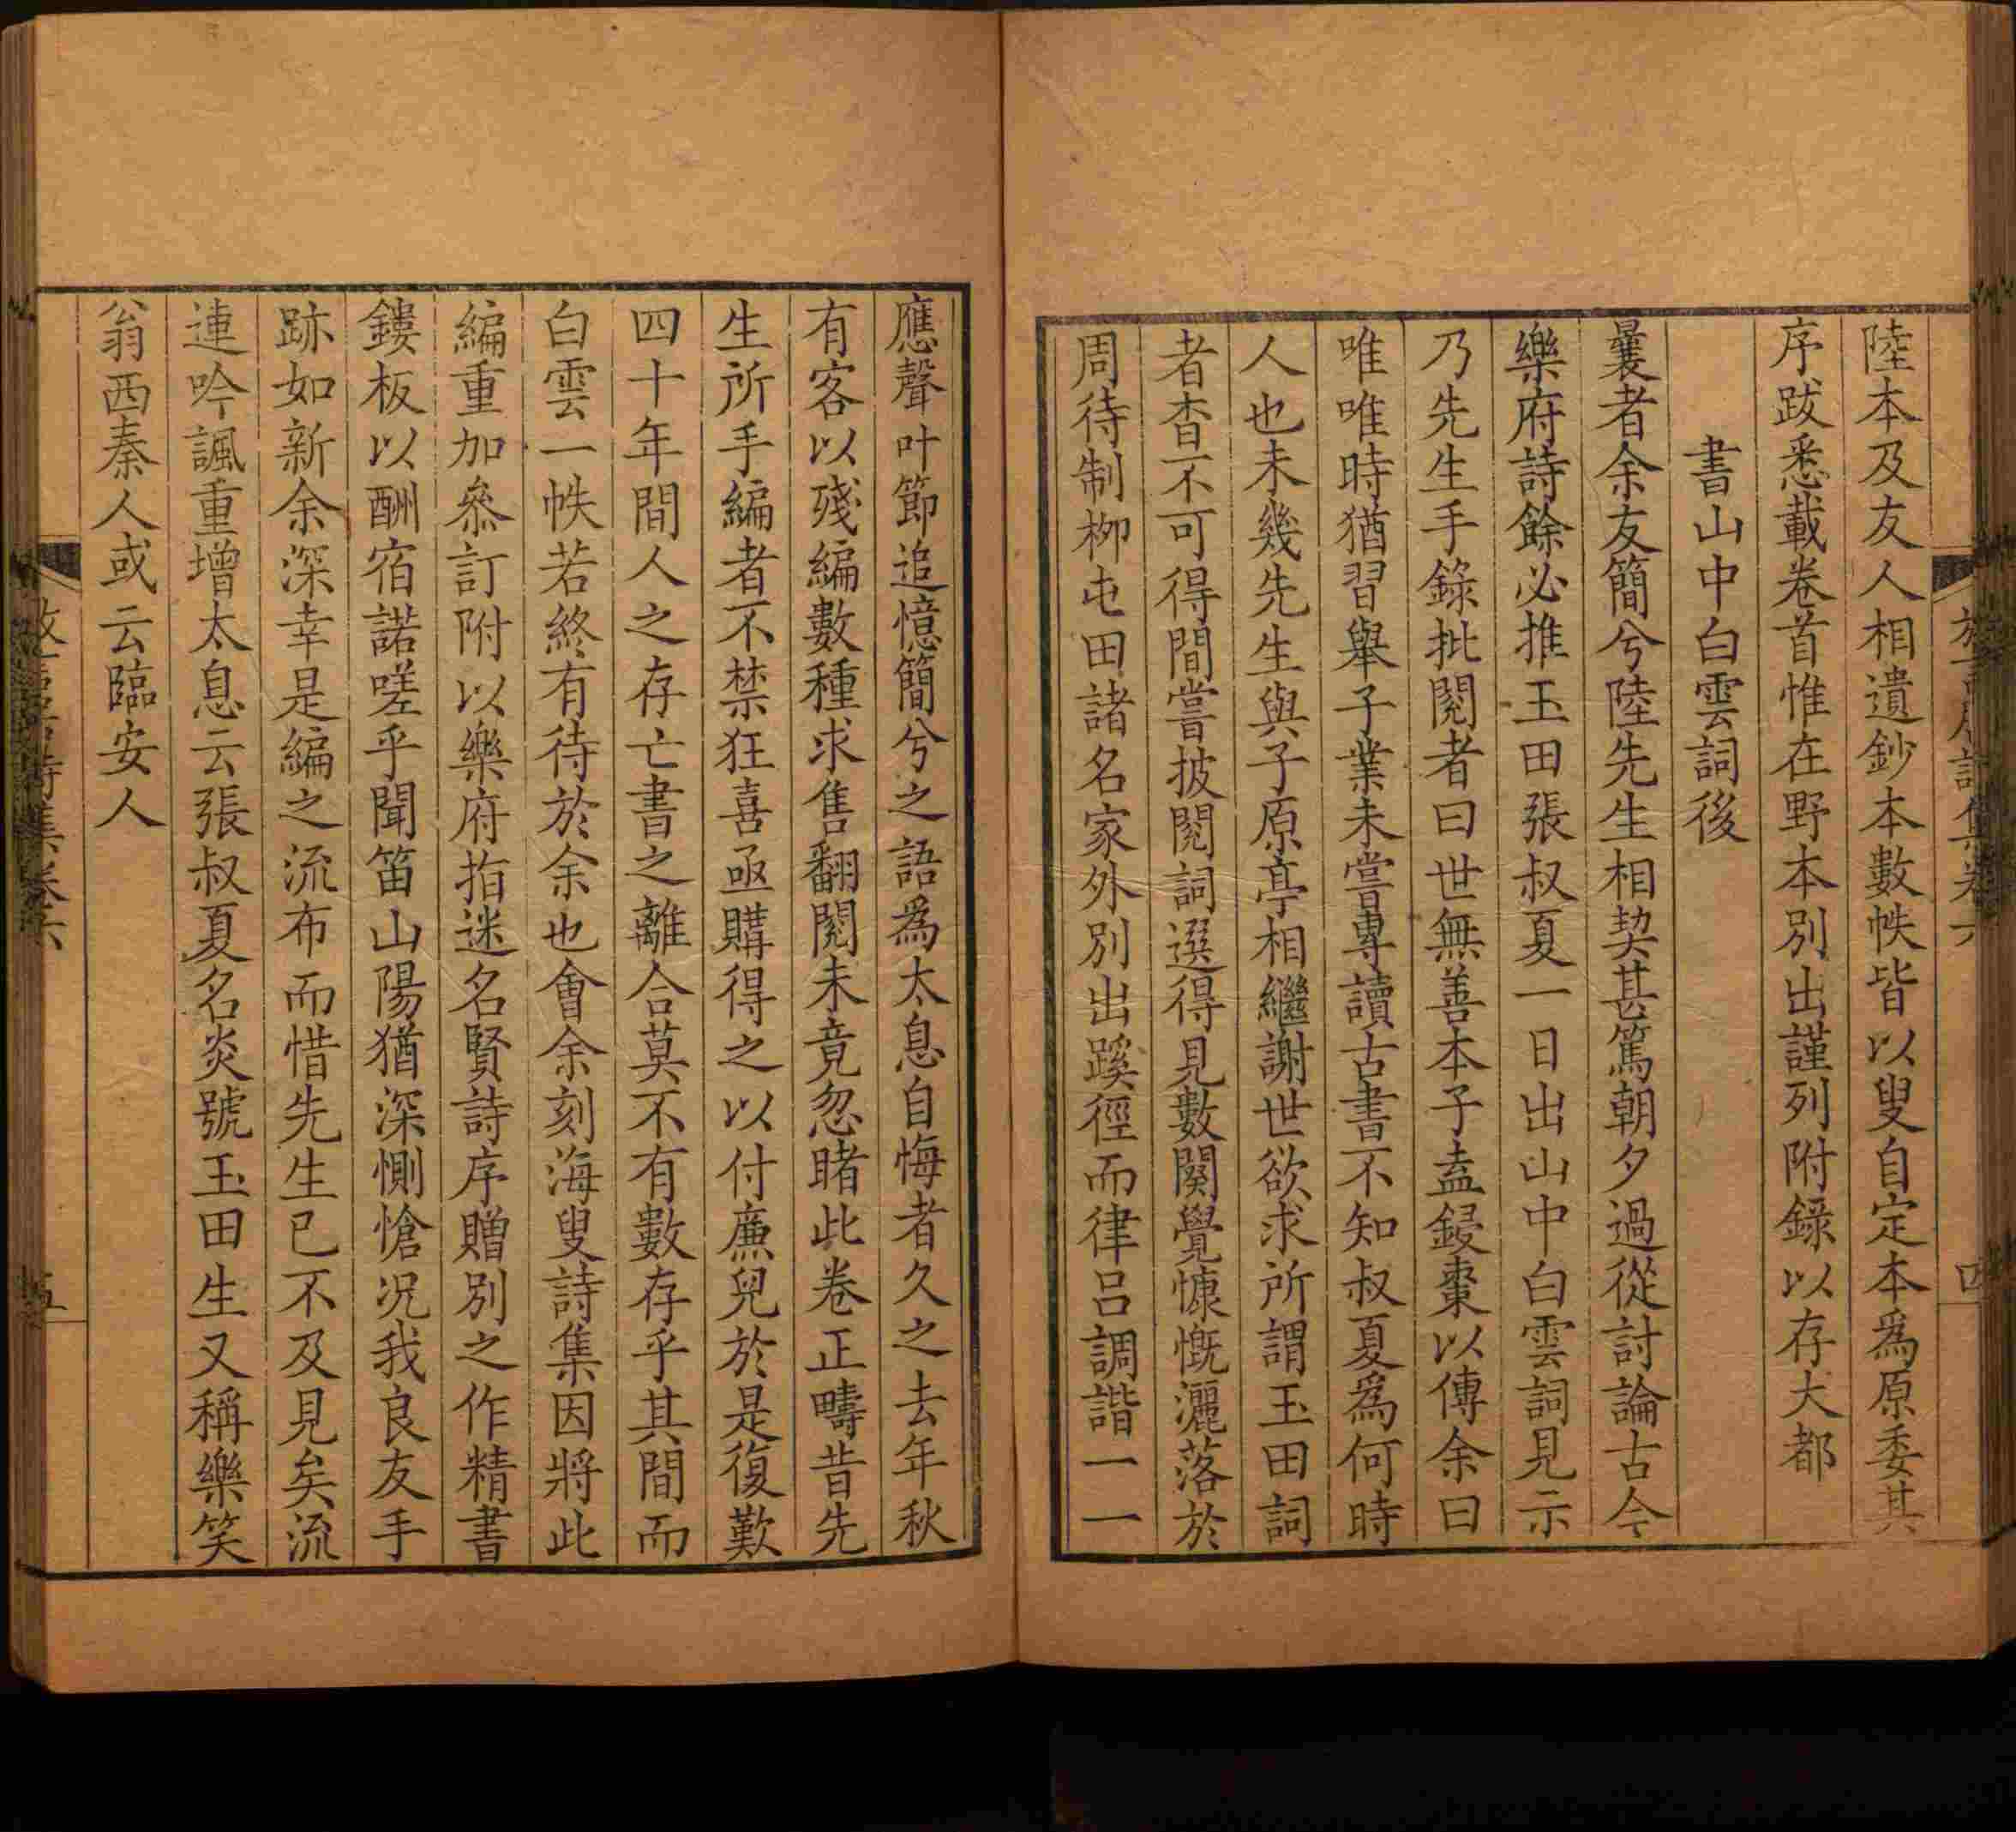 陸本及友人相遺鈔本數帙皆以叟自定本爲原委其
序跋悉載卷首惟在野本別出謹列附錄以存大都
書山中白雲詞後
曩者余友簡兮陸先生相契甚篤朝夕過從討論古今
樂府詩餘必推玉田張叔夏一日出山中白雲詞見示
乃先生手錄批閱者曰世無善本子盍鋟棗以傳余曰
唯唯時猶習舉子業未嘗專讀古書不知叔夏爲何時
人也未幾先生與子原亭相繼謝世欲求所謂玉田詞
者杳不可得間嘗披閱詞選得見數闋覺慷慨灑落於
周待制柳屯田諸名家外別出蹊徑而律呂調諧一一
應聲叶節追憶簡兮之語爲太息自悔者久之去年秋
有客以殘編數種求售翻閱未竟忽睹此卷正疇昔先
生所手編者不禁狂喜亟購得之以付廉兒於是復歎
四十年間人之存亡書之離合莫不有數存乎其間而
白雲一帙若終有待於余也會余刻海叟詩集因將此
編重加參訂附以樂府指迷名賢詩序贈別之作精書
鏤板以酬宿諾嗟乎聞笛山陽猶深惻愴況我良友手
跡如新余深幸是編之流布而惜先生已不及見矣流
連吟諷重增太息云張叔夏名炎號玉田生又稱樂笑
翁西秦人或云臨安人